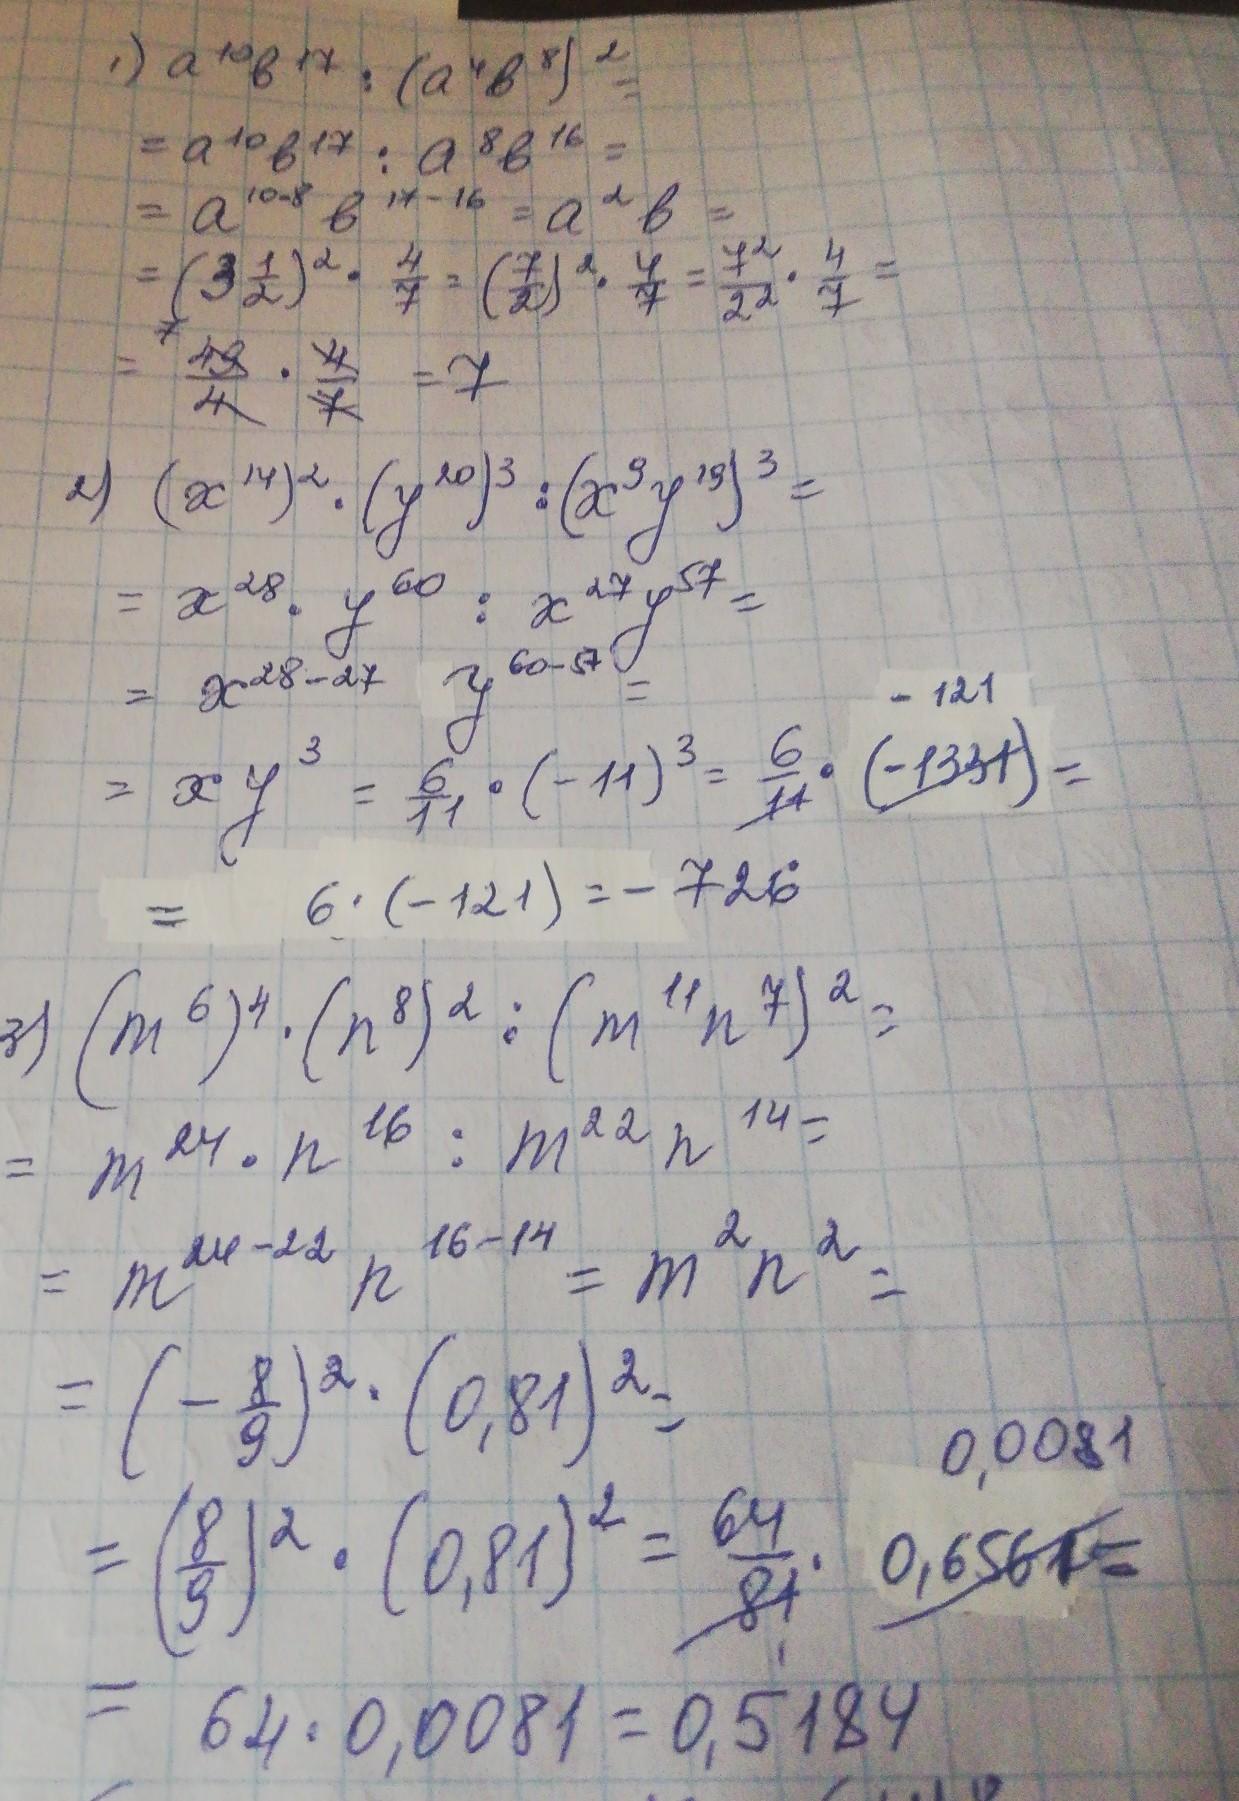 1) a^10 b^17 : (a^4 b^8)^2 =
= a^10 b^17 : a^8 b^16 =
= a^10-8 b^17-16 = a^2 b =
= (3 1/2)^2 · 4/7 = (7/2)^2 · 4/7 = 7^2/2^2 · 4/7 =
7
= 49/4 · 4/7 = 7
2) (x^14)^2 · (y^20)^3 : (x^9 y^19)^3 =
= x^28 · y^60 : x^27 y^57 =
= x^28-27 y^60-57 =
- 121
= x y^3 = 6/11 · (-11)^3 = 6/11 · (-1331) =
= 6 · (-121) = - 726
3) (m^6)^4 · (n^8)^2 : (m^11 n^7)^2 =
= m^24 · n^16 : m^22 n^14 =
= m^24-22 n^16-14 = m^2 n^2 =
= (- 8/9)^2 · (0,81)^2 =
0,0081
= (8/9)^2 · (0,81)^2 = 64/81 · 0,6561 =
1
= 64 · 0,0081 = 0,5184